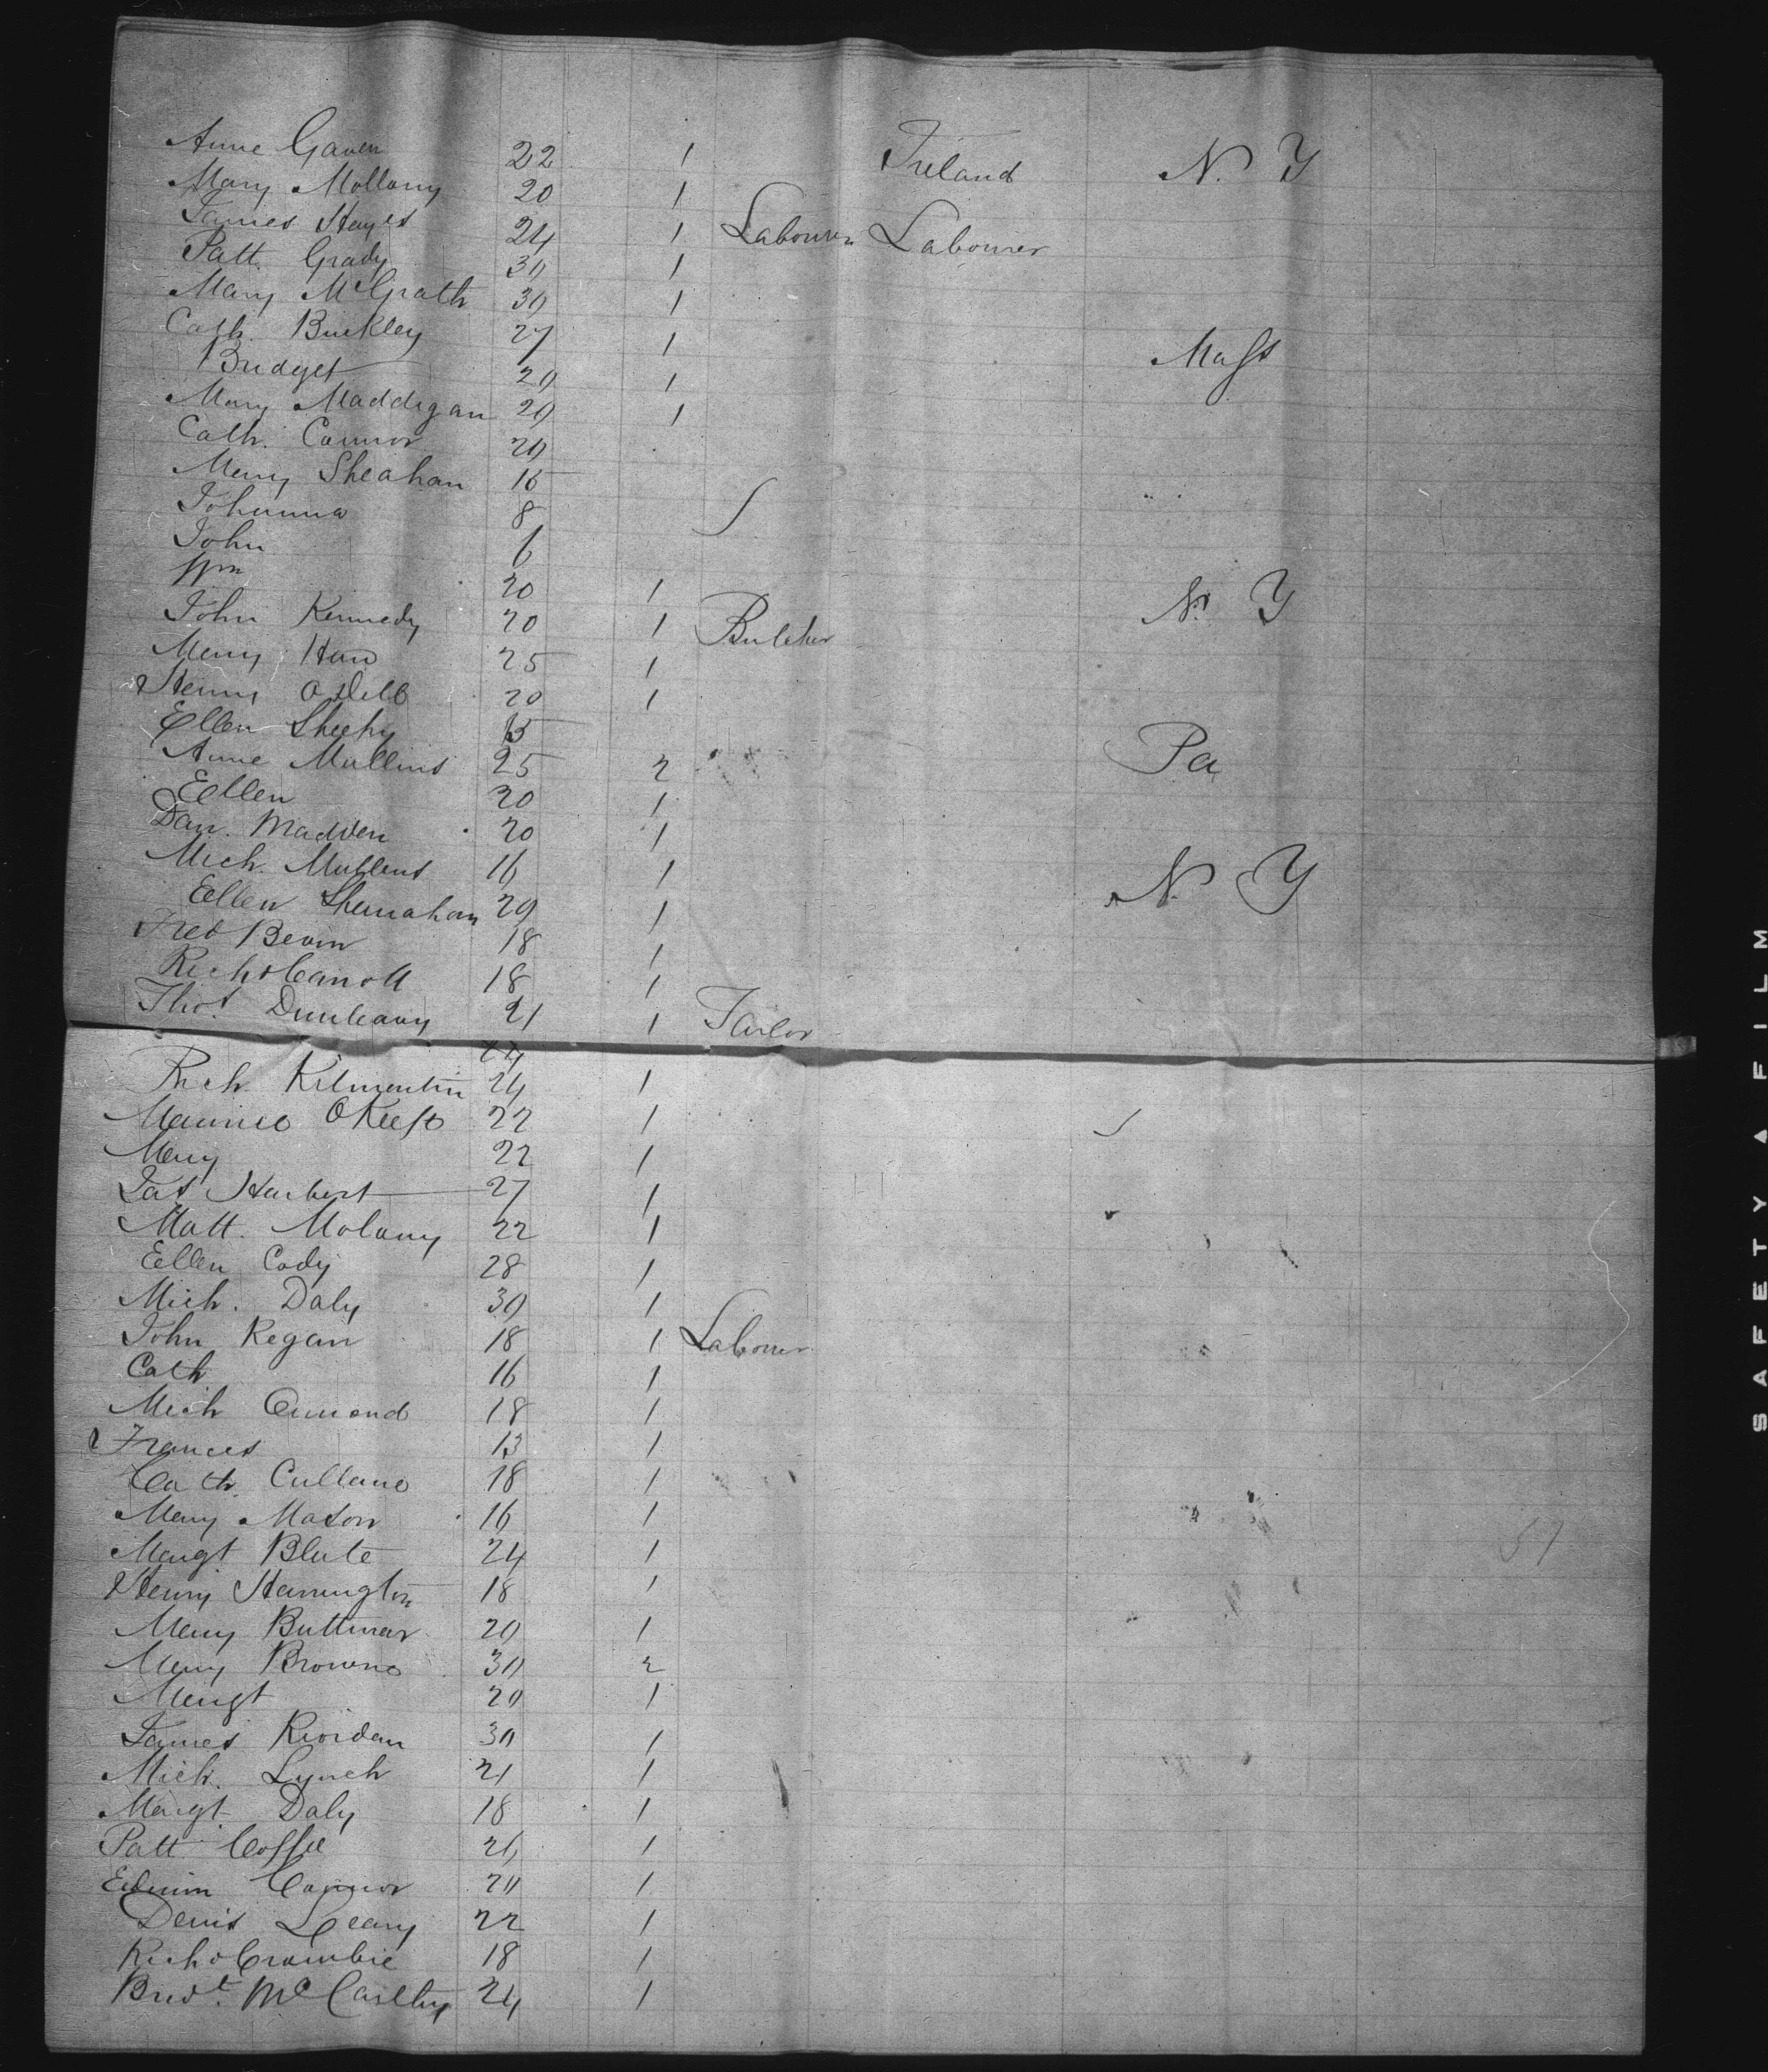 Anne Gaven 22 1 Ireland N. Y
Mary Mollony 20 1
James Hayes 24 1 Labourer Labourer
Patt. Grady 30 1
Mary McGrath 30 1
Cath. Buckley 27 1 Mass
Bridget 20 1
Mary Maddigan 20 1
Cath. Connor 20
Mary Sheahan 15
Johanna 8
John 6
Wm 20 1
John Kennedy 20 1 Butcher N. Y
Mary 25 1
Henry Odell 20 1
Ellen Sheehy 15
Anne Mullins 25 2 Pa
Ellen 20 1
Dan. Madden 20 1
Mich. Mullens 16 1 N. Y
Ellen Shanahan 20 1
Fred Bevin 18 1
Richd Carroll 18 1
Thos. Dunleavy 21 1 Tailor
24
Rich. 24 1
Maurice OKeefe 22 1
Mary 22 1
Jas Harbert 27 1
Matt. Molony 22 1
Ellen Cody 28 1
Mich. Daly 30 1
John Regan 18 1 Labourer
Cath 16 1
Mich 18 1
Frances 13 1
Cath. Cullane 18 1
Mary Mason 16 1
Margt Blute 24 1
Henry Harrington 18 1
Mary Buttimer 20 1
Mary Browne 30 2
Margt 20 1
James Riordan 30 1
Mich. Lynch 21 1
Margt Daly 18 1
Patt Coffee 26 1
Connor 20 1
Denis Leary 22 1
Richd Crombie 18 1
Bridt. McCarthy 24 1
51
SAFETY A FILM